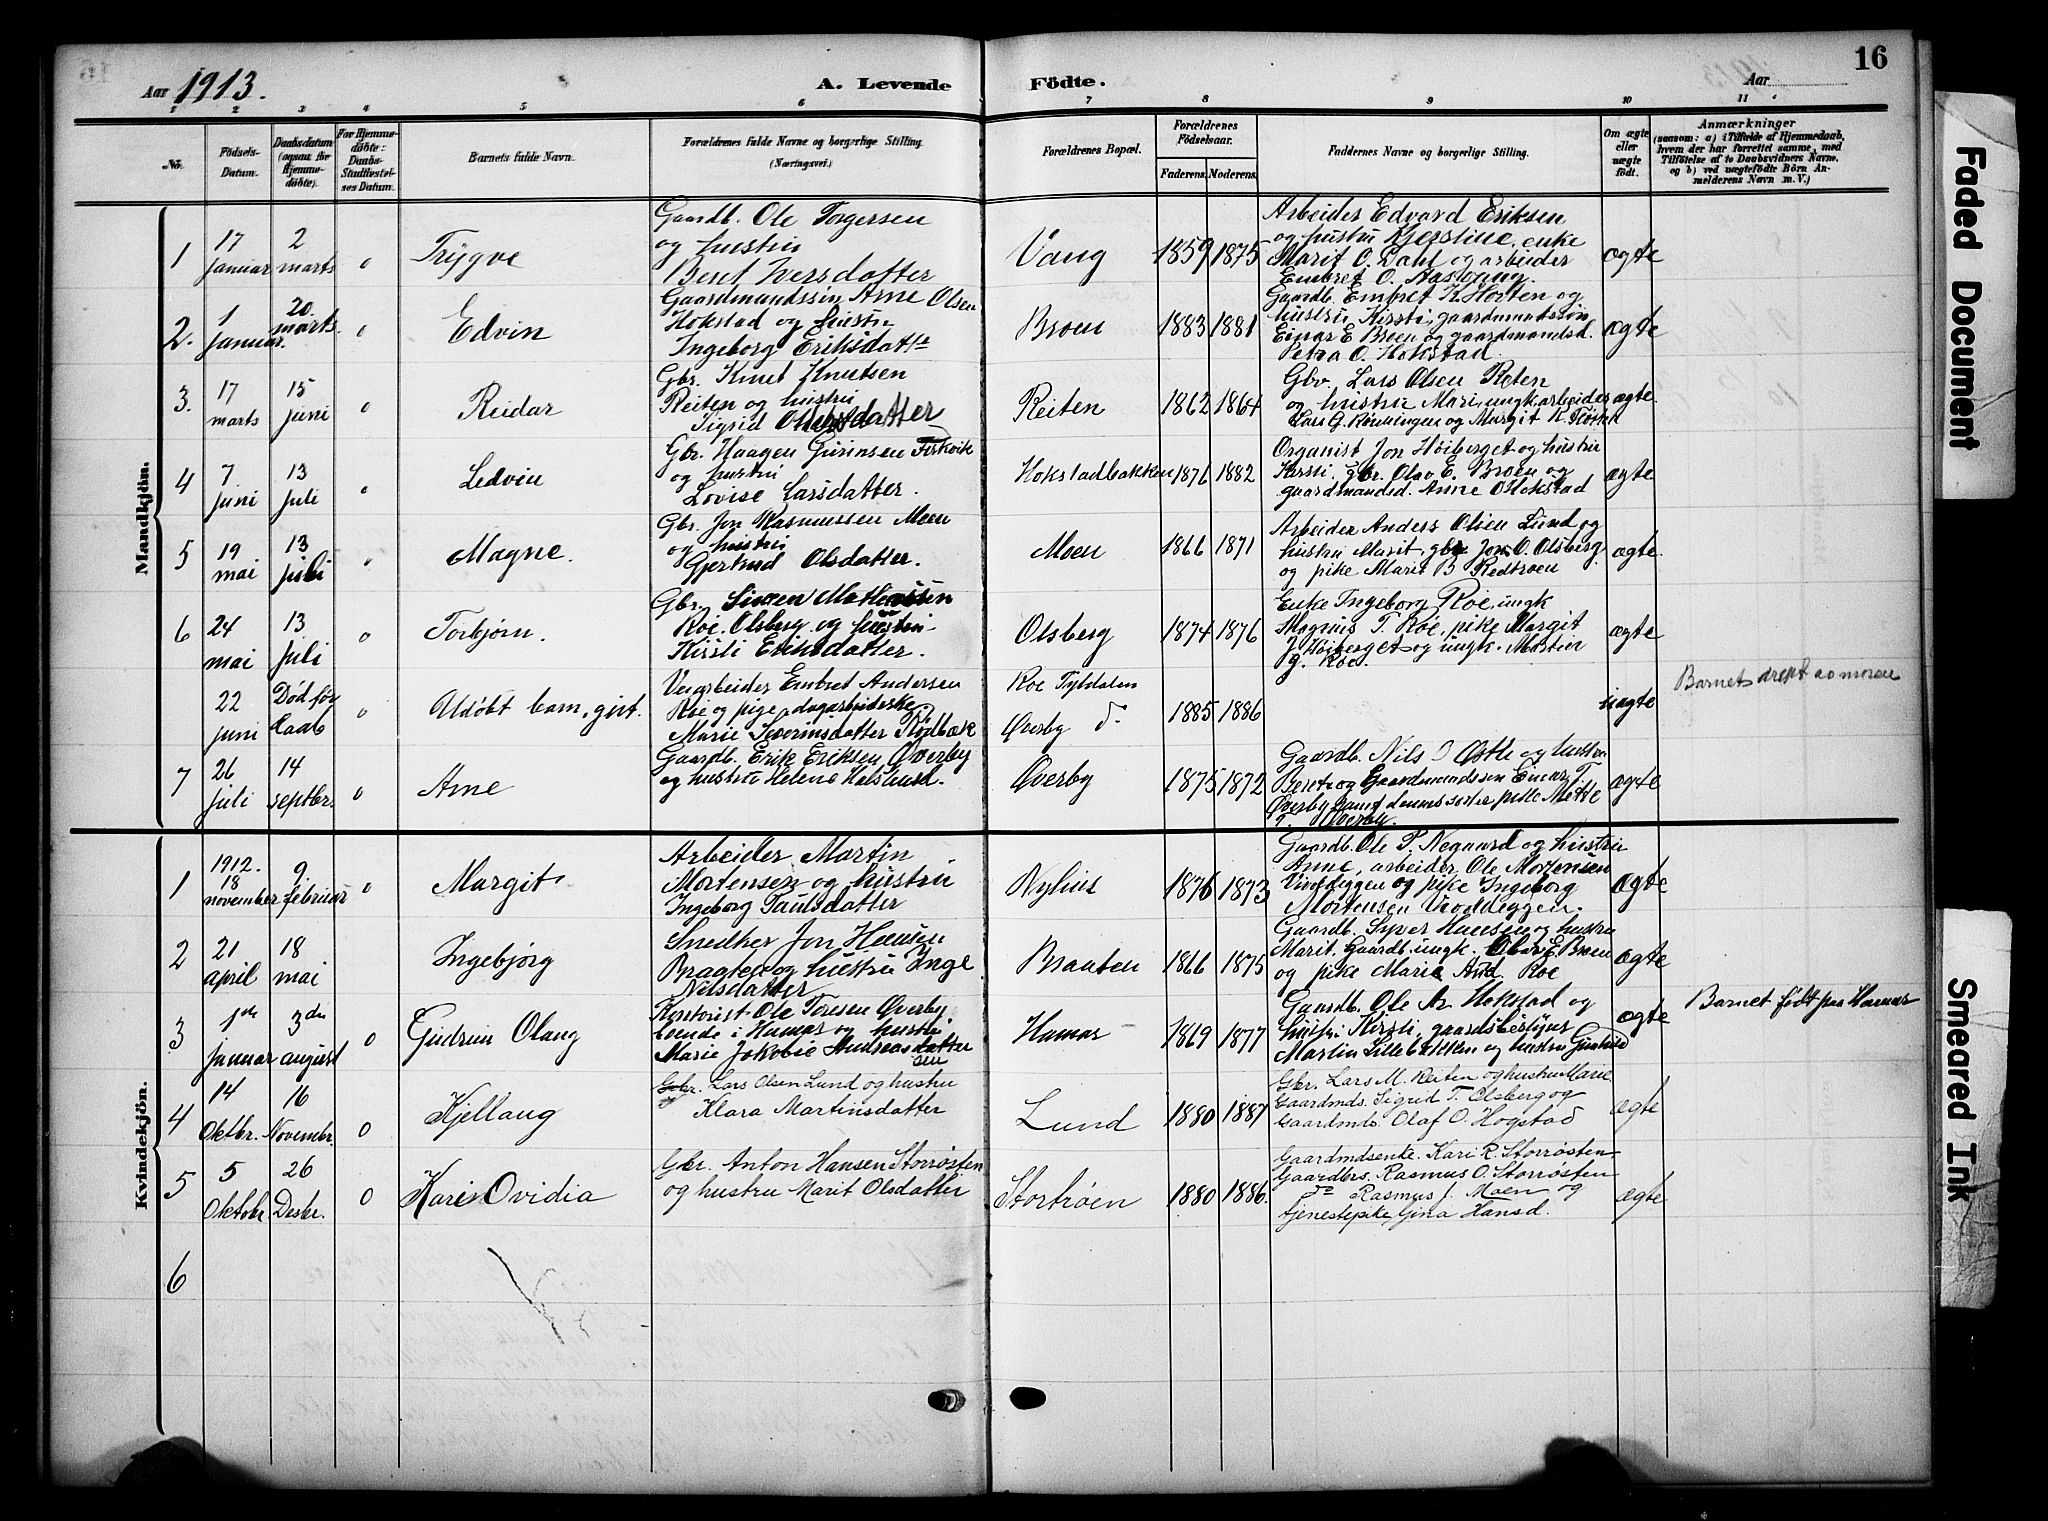 16
Aar 1913.
A. Levende Födte.
Aar
1 2 3 4 5 6 7 8 9 10 11
No.
Födsels-
Datum.
Daabsdatum
(ogsaa for
Hjemme-
döbte).
For Hjemme-
döbte:
Daabs-
Stadfæstel-
ses Datum.
Barnets fulde Navn.
Forældrenes fulde Navne og borgerlige Stilling.
(Næringsvei.)
Forældrenes Bopæl.
Forældrenes
Födselsaar.
Faderens. Moderens.
Faddernes Navne og borgerlige Stilling.
Om ægte
eller
uægte
födt.
Anmærkninger
(saasom: a) i Tilfælde af Hjemmedaab,
hvem der har forrettet samme, med
Tilföielse af to Daabsvidners Navne.
og b) ved uægtefödte Börn An-
melderens Navn m. V.)
Mandkjön.
1
17
januar
2
marts
0
Trygve
Gaardb. Ole Torgersen
og hustru
Berit Iversdatter
Vang
1859 1875
Arbeider Edvard Eriksen
og hustru Kjerstine, enke
Marit O. Dahl og arbeider
Embret O. Aasvang
ægte
2.
1
januar.
20.
marts.
0
Edvin
Gaardmandssøn Arne Olsen
Hokstad og hustru
Ingeborg Eriksdatte
Broen
1883 1881
Gaardb. Embret K. Horten og
hustru Kirsti, gaardmandssøn
Einar E Broen og gaardmandsd.
Petra O. Hokstad.
ægte
3.
17
marts
15
juni
0
Reidar
Gbr. Knut Knutsen
Reiten og hustru
Sigrid Olsdatter
Reiten
1862 1864
Gbr. Lars Olsen Reten
og hustru Mari, ungk. arbeider
Lars G. Rønningen og Margit K.
ægte.
4
7
juni
13
juli
0
Ledvin
Gbr. Haagen
og hustru
Lovise Larsdatter.
Hokstadbakken
1876 1882
Organist Jon Høiberget og hustru
Kirsti, gbr. Olav E. Broen og
gaardmandsd. Anne O Hokstad
ægte
5
19
mai
13
juli
0
Magne.
Gbr. Jon Rasmussen Moen
og hustru
Gjertrud Olsdatter.
Moen
1866 1871
Arbeider Anders Olsen Lund og
hustru Marit, gbr. Jon O. Olsberg
og pike Marit B Redtrøen
ægte.
6
24
mai
13
juli
0
Torbjørn.
Gbr. Simen Mathiassen
Roe. Olsberg og hustru
Kirsti Eriksdatter.
Olsberg
1874 1876
Enke Ingeborg Roe, ungk
Magnus T. Roe, pike Margit
J Høiberget og ungk. Morten
G. Roe.
ægte
22
juni
Død før
Daab
0
Udøbt barn, gut.
Veiarbeider Embret Andersen
Roe og pige, dagarbeiderske
Marie Severinsdatter Rødbæk
Roe Tyldalen
Øverby do
1885 1886
uægte
Barnet dræpt av moren
7
26
juli
14
septbr.
0
Arne
Gaardb. Erik Eriksen Øverby
og hustru Helene
Øverby
1875 1872
Gaardb. Nils Østli og hustru
Beret og Gaardmandssøn Einar T.
Øverby samt dennes søster pike Mette
T. Øverby.
ægte
Kvindekjön.
1
1912.
18
november
9.
februar
0
Margit
Arbeider Martin
Mortensen og hustru
Ingeborg Paulsdatter
Nyhus
1876 1873
Gaardb. Ole P. Negaard og hustru
Anne, arbeider Ole Mortensen
Vinddeggen og pike Ingeborg
Mortensen Vinddeggen.
ægte
2
21
april
18
mai
0
Ingebjørg
Snedker Jon Hansen
Braaten og hustru Inge
Nilsdatter
Braaten
1866 1875
Gaardb. Syver Hansen og hustru
Marit. Gaardb. ungk. Olav E Broen
og pike Marie And. Roe
ægte
3
1ste
januar
3die
august
0
Gudrun Olaug
Ole Toresen Øverby
boende i Hamar og hustru
Marie Jakobie Andreasdatter
sen
Hamar
1869 1877
Gaardb. Ole A. Hokstad og
hustru Kirsti, gaardsbestyrer
Martin Lillebakken og hustru Gunhild
ægte
Barnet født paa Hamar
4
14
Oktbr.
16
Novembr.
0
Kjellaug
Gbr. Lars Olsen Lund og hustru
Klara Martinsdatter
Lund
1880 1887
Gbr. Lars M. Reiten og hustru Marie
Gaardmds. Sigrid T. Olsberg og
Gaardmds. Olaf O. Hogstad
ægte
5
5
Oktobr.
26
Desbr.
0
Kari Ovidia
Gbr. Anton Hansen Storrøsten
og hustru Marit Olsdatter
Stortrøen
1880 1886.
Gaardmdsenke. Kari R. Storrøsten
Gaardbrs. Rasmus O. Storrøsten
do Rasmus J. Moen og
tjenestepike Gina Hansd.
ægte
6
Faded Document
Smeared Ink